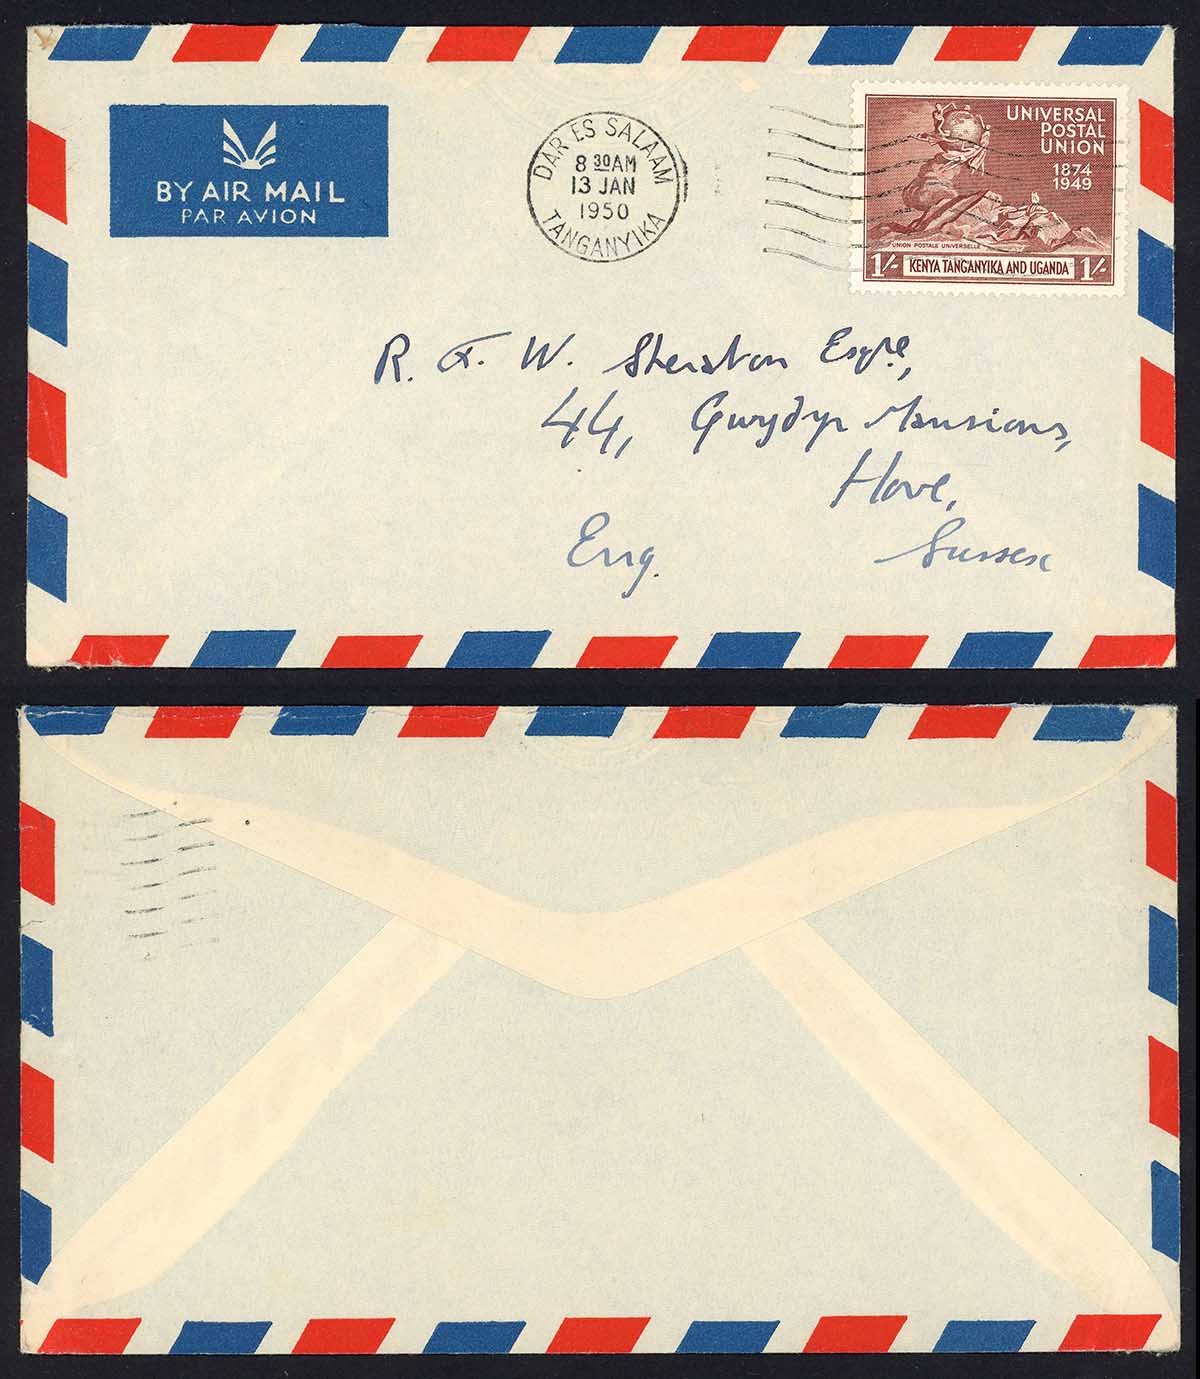 BY AIR MAIL
PAR AVION
DAR ES SALAAM
8 30 AM
13 JAN
1950
TANGANYIKA
UNIVERSAL
POSTAL
UNION
1874
1949
UNION POSTALE UNIVERSELLE
1/- KENYA TANGANYIKA AND UGANDA 1/-
R. F. W. Sheraton Esqre.,
44, Gwydyr Mansions,
Hove,
Eng. Sussex